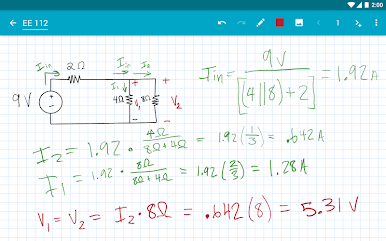 2:00
EE 112
1
Iin 2Ω Iin I2
9V I1 4Ω 8Ω + V1 - + V2 -
Iin = 9V / [(4||8)+2] = 1.92A
I2 = 1.92 · 4Ω / 8Ω+4Ω = 1.92(1/3) = .642A
I1 = 1.92 · 8Ω / 8Ω+4Ω = 1.92(2/3) = 1.28A
V1 = V2 = I2 · 8Ω = .642(8) = 5.31 V